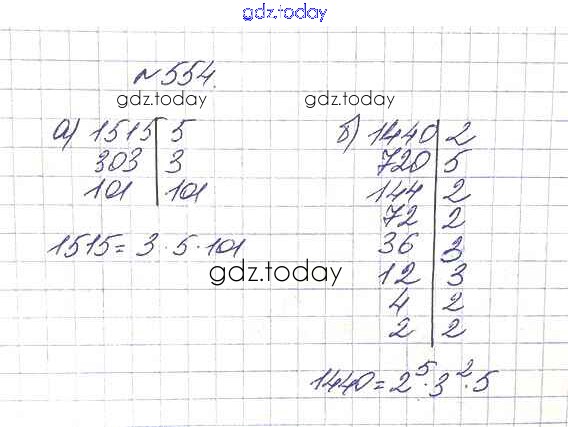 gdz.today
№554.
gdz.today gdz.today
а) 1515 | 5
303 | 3
101 | 101
1515 = 3 · 5 · 101
б) 1440 | 2
720 | 5
144 | 2
72 | 2
36 | 3
12 | 3
4 | 2
2 | 2
gdz.today
1440 = 2⁵ · 3² · 5